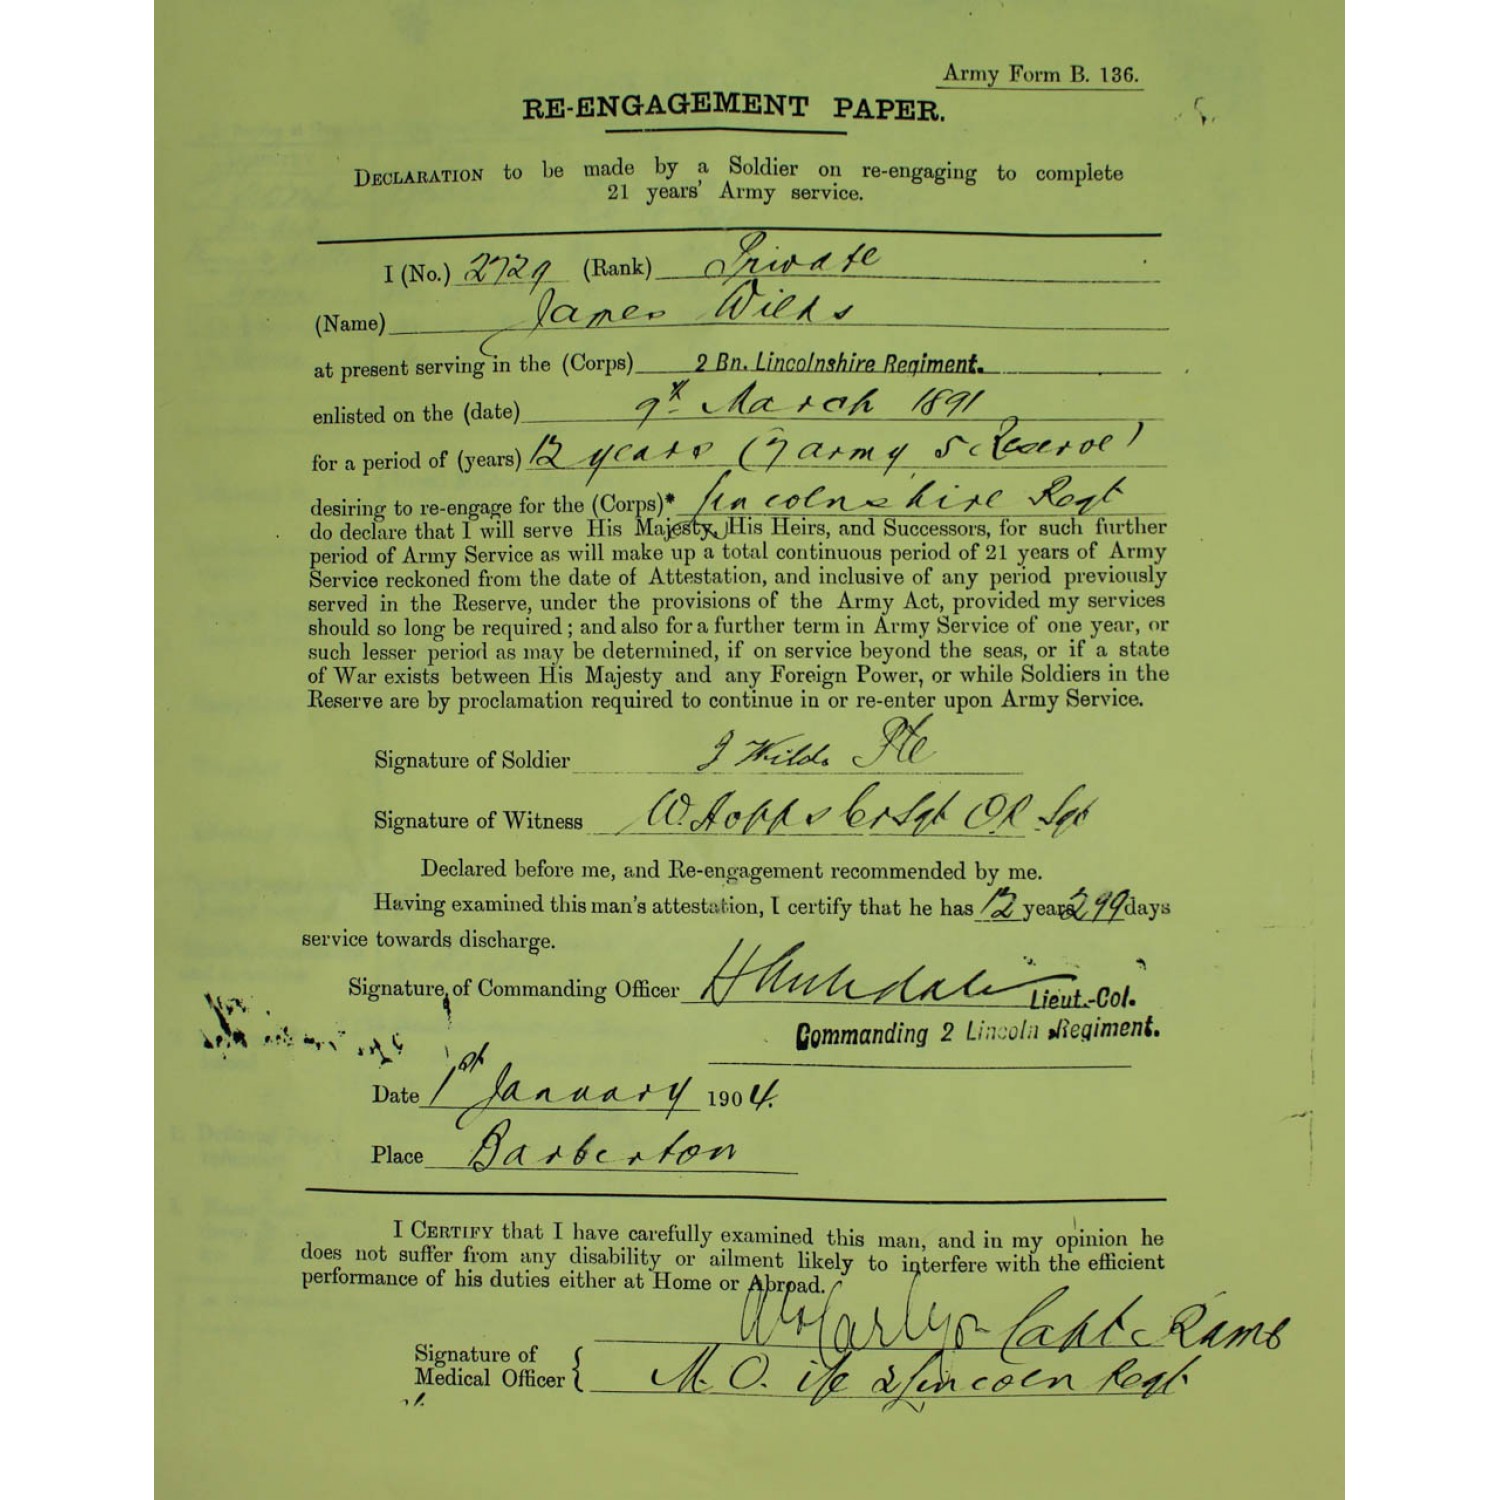 Army Form B. 136.
RE-ENGAGEMENT PAPER.
DECLARATION to be made by a Soldier on re-engaging to complete
21 years' Army service.
I (No.) 2729 (Rank) Private
(Name) James Wilds
at present serving in the (Corps) 2 Bn. Lincolnshire Regiment.
enlisted on the (date) 9th March 1891
for a period of (years) 12 years (7 army 5 Reserve)
desiring to re-engage for the (Corps)* Lincolnshire Regt
do declare that I will serve His Majesty, His Heirs, and Successors, for such further
period of Army Service as will make up a total continuous period of 21 years of Army
Service reckoned from the date of Attestation, and inclusive of any period previously
served in the Reserve, under the provisions of the Army Act, provided my services
should so long be required; and also for a further term in Army Service of one year, or
such lesser period as may be determined, if on service beyond the seas, or if a state
of War exists between His Majesty and any Foreign Power, or while Soldiers in the
Reserve are by proclamation required to continue in or re-enter upon Army Service.
Signature of Soldier J Wilds Pte
Signature of Witness W. Hopps Cr Sgt O.R. Sgt
Declared before me, and Re-engagement recommended by me.
Having examined this man's attestation, I certify that he has 12 years 299 days
service towards discharge.
Signature of Commanding Officer Lieut.-Col.
Commanding 2 Lincoln Regiment.
Date 1st January 1904.
Place Barberton
I CERTIFY that I have carefully examined this man, and in my opinion he
does not suffer from any disability or ailment likely to interfere with the efficient
performance of his duties either at Home or Abroad.
Capt Ramc
Signature of
Medical Officer { M. O. i/c 2 Lincoln Regt